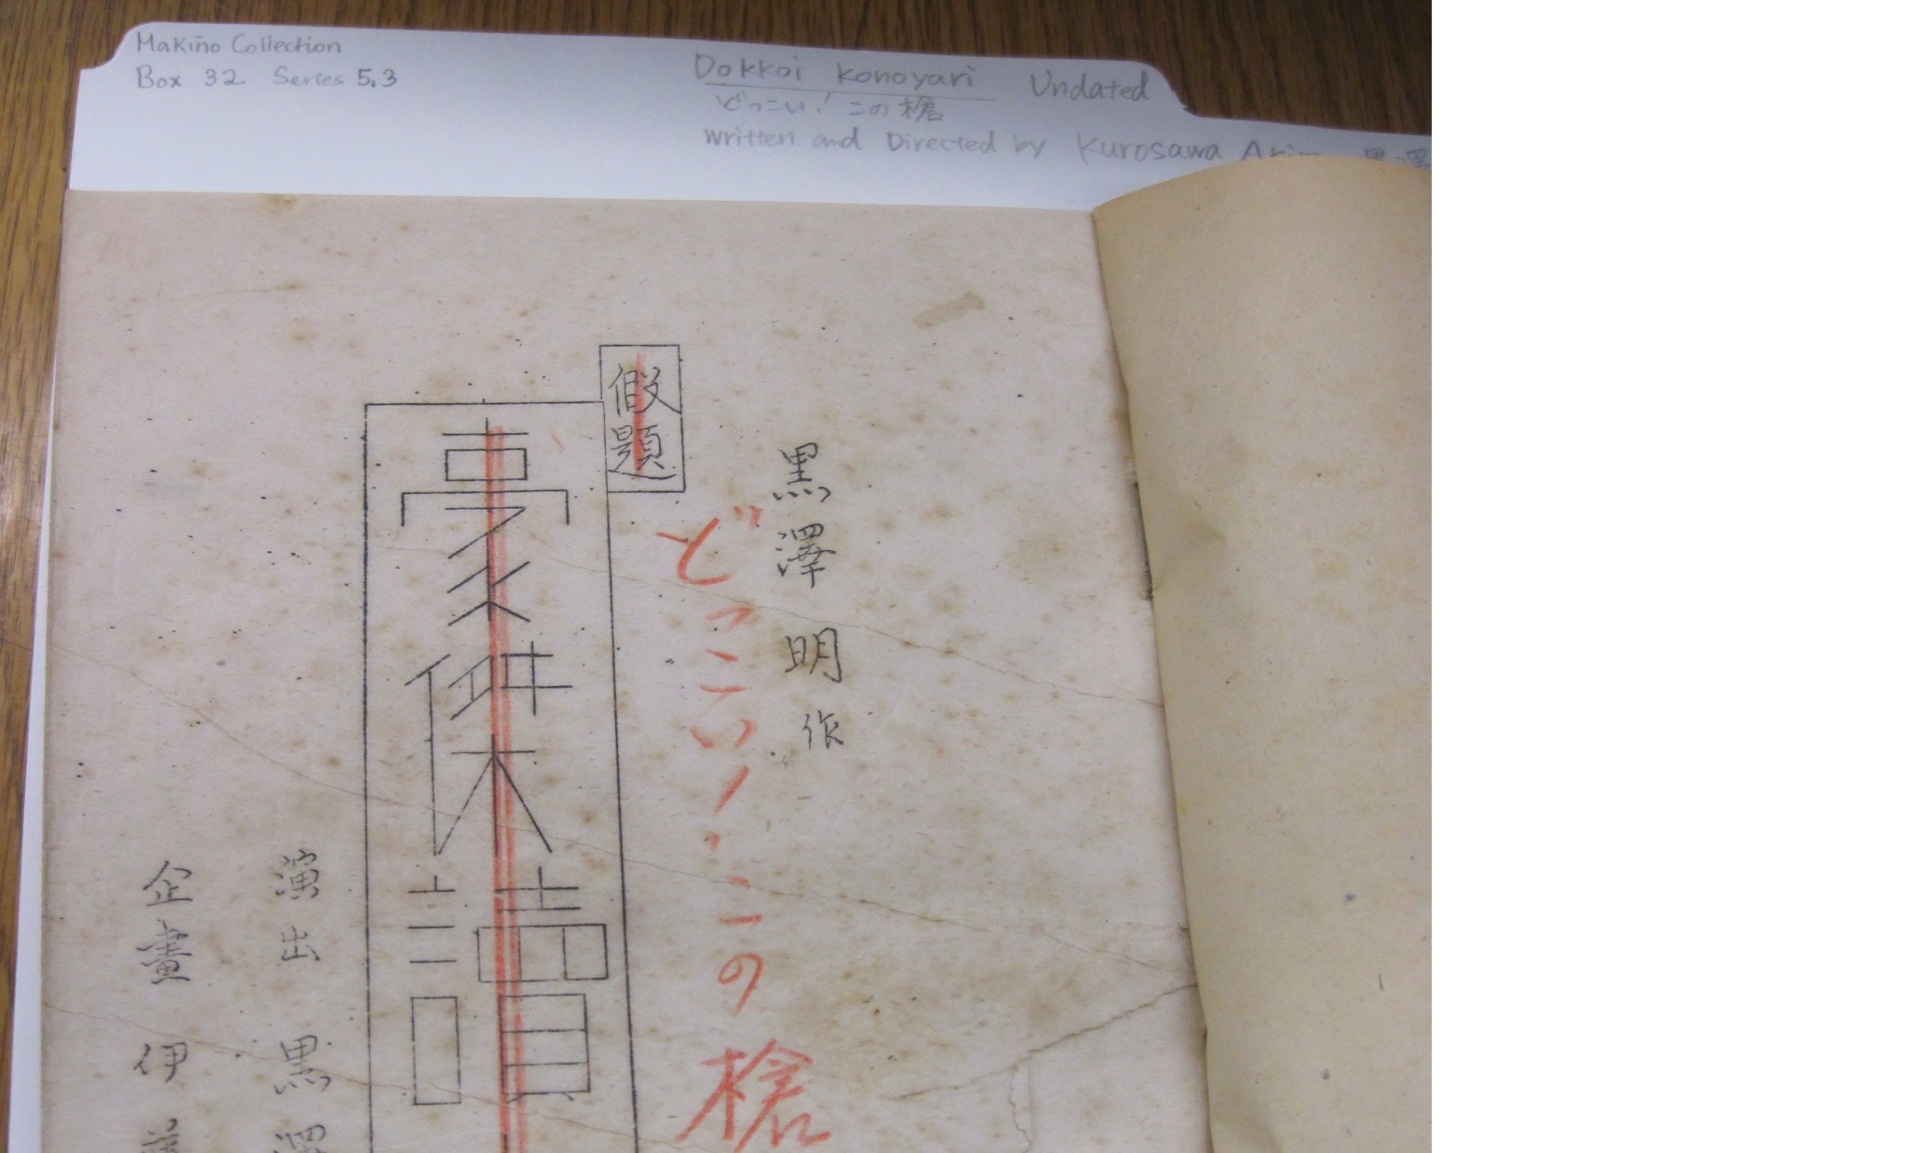 Makino Collection
Box 32 Series 5.3
Dokkoi Konoyari Undated
どっこい!この槍
written and Directed by Kurosawa
黒澤明作
假題
どっこい!この槍
豪傑讀
演出 黒澤
企畫 伊